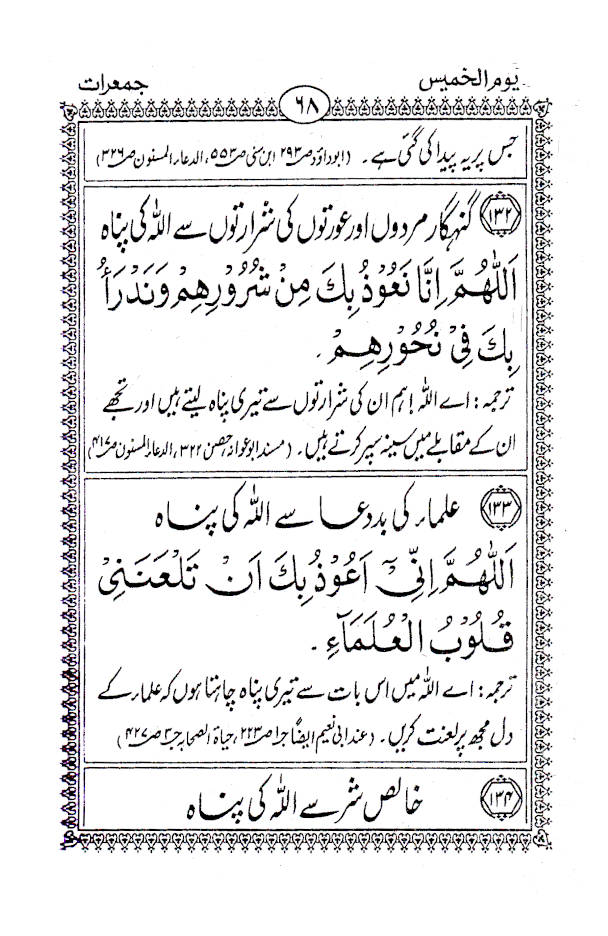 یوم الخمیس
جمعرات
۶۸
جس پر یہ پیدا کی گئی ہے۔ (ابوداؤد صـ۲۹۳ ابن سنی صـ۵۵۳، الدعاء المسنون صـ۳۲۶)
۱۳۲ گنہگار مردوں اور عورتوں کی شرارتوں سے اللہ کی پناہ
اَللّٰهُمَّ اِنَّا نَعُوْذُ بِكَ مِنْ شُرُوْرِهِمْ وَنَدْرَأُ
بِكَ فِيْ نُحُوْرِهِمْ۔
ترجمہ: اے اللہ! ہم ان کی شرارتوں سے تیری پناہ لیتے ہیں اور تجھے
ان کے مقابلے میں سینہ سپر کرتے ہیں۔ (مسند ابوعوانہ، حصن ۳۲۲، الدعاء المسنون صـ۴۱۷)
۱۳۳ علماء کی بددعا سے اللہ کی پناہ
اَللّٰهُمَّ اِنِّيْٓ اَعُوْذُ بِكَ اَنْ تَلْعَنَنِيْ
قُلُوْبُ الْعُلَمَآءِ۔
ترجمہ: اے اللہ میں اس بات سے تیری پناہ چاہتا ہوں کہ علماء کے
دل مجھ پر لعنت کریں۔ (عند ابی نعیم ایضًا جـ۱ صـ۲۲۳، حیاۃ الصحابہ جـ۳ صـ۴۲۷)
۱۳۴ خالص شر سے اللہ کی پناہ